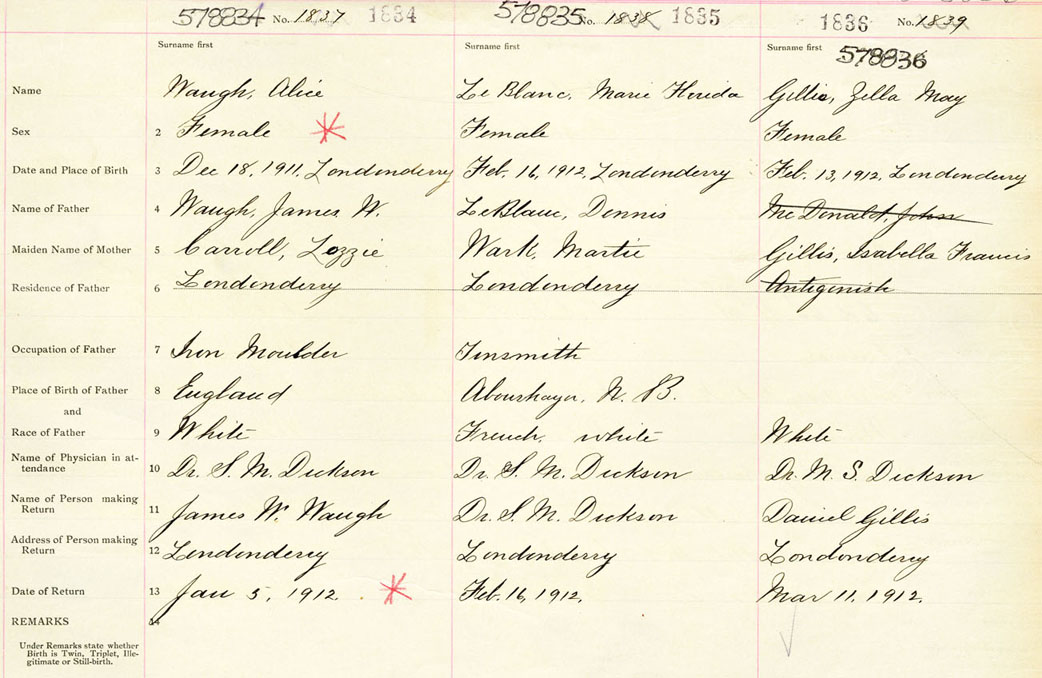 578834 No. 1837 1834 578835 No. 1838 1835 1836 No. 1839
Surname first Surname first Surname first 578836
Name Waugh, Alice Le Blanc, Marie Gillis, Zella May
Sex 2 Female Female Female
Date and Place of Birth 3 Dec 18, 1911, Londonderry Feb. 16, 1912, Londonderry Feb. 13, 1912, Londonderry
Name of Father 4 Waugh, James W. LeBlanc, Dennis Mc Donald, John
Maiden Name of Mother 5 Carroll, Lozzie Wark, Martie Gillis, Isabella Francis
Residence of Father 6 Londonderry Londonderry Antigonish
Occupation of Father 7 Iron Moulder Tinsmith
Place of Birth of Father 8 England N. B.
and
Race of Father 9 White French, white White
Name of Physician in at-
tendance 10 Dr. S. M. Dickson Dr. S. M. Dickson Dr. M. S. Dickson
Name of Person making
Return 11 James W. Waugh Dr. S. M. Dickson Daniel Gillis
Address of Person making
Return 12 Londonderry Londonderry Londonderry
Date of Return 13 Jan 5, 1912. Feb. 16, 1912. Mar 11. 1912.
REMARKS 14
Under Remarks state whether
Birth is Twin, Triplet, Ille-
gitimate or Still-birth.